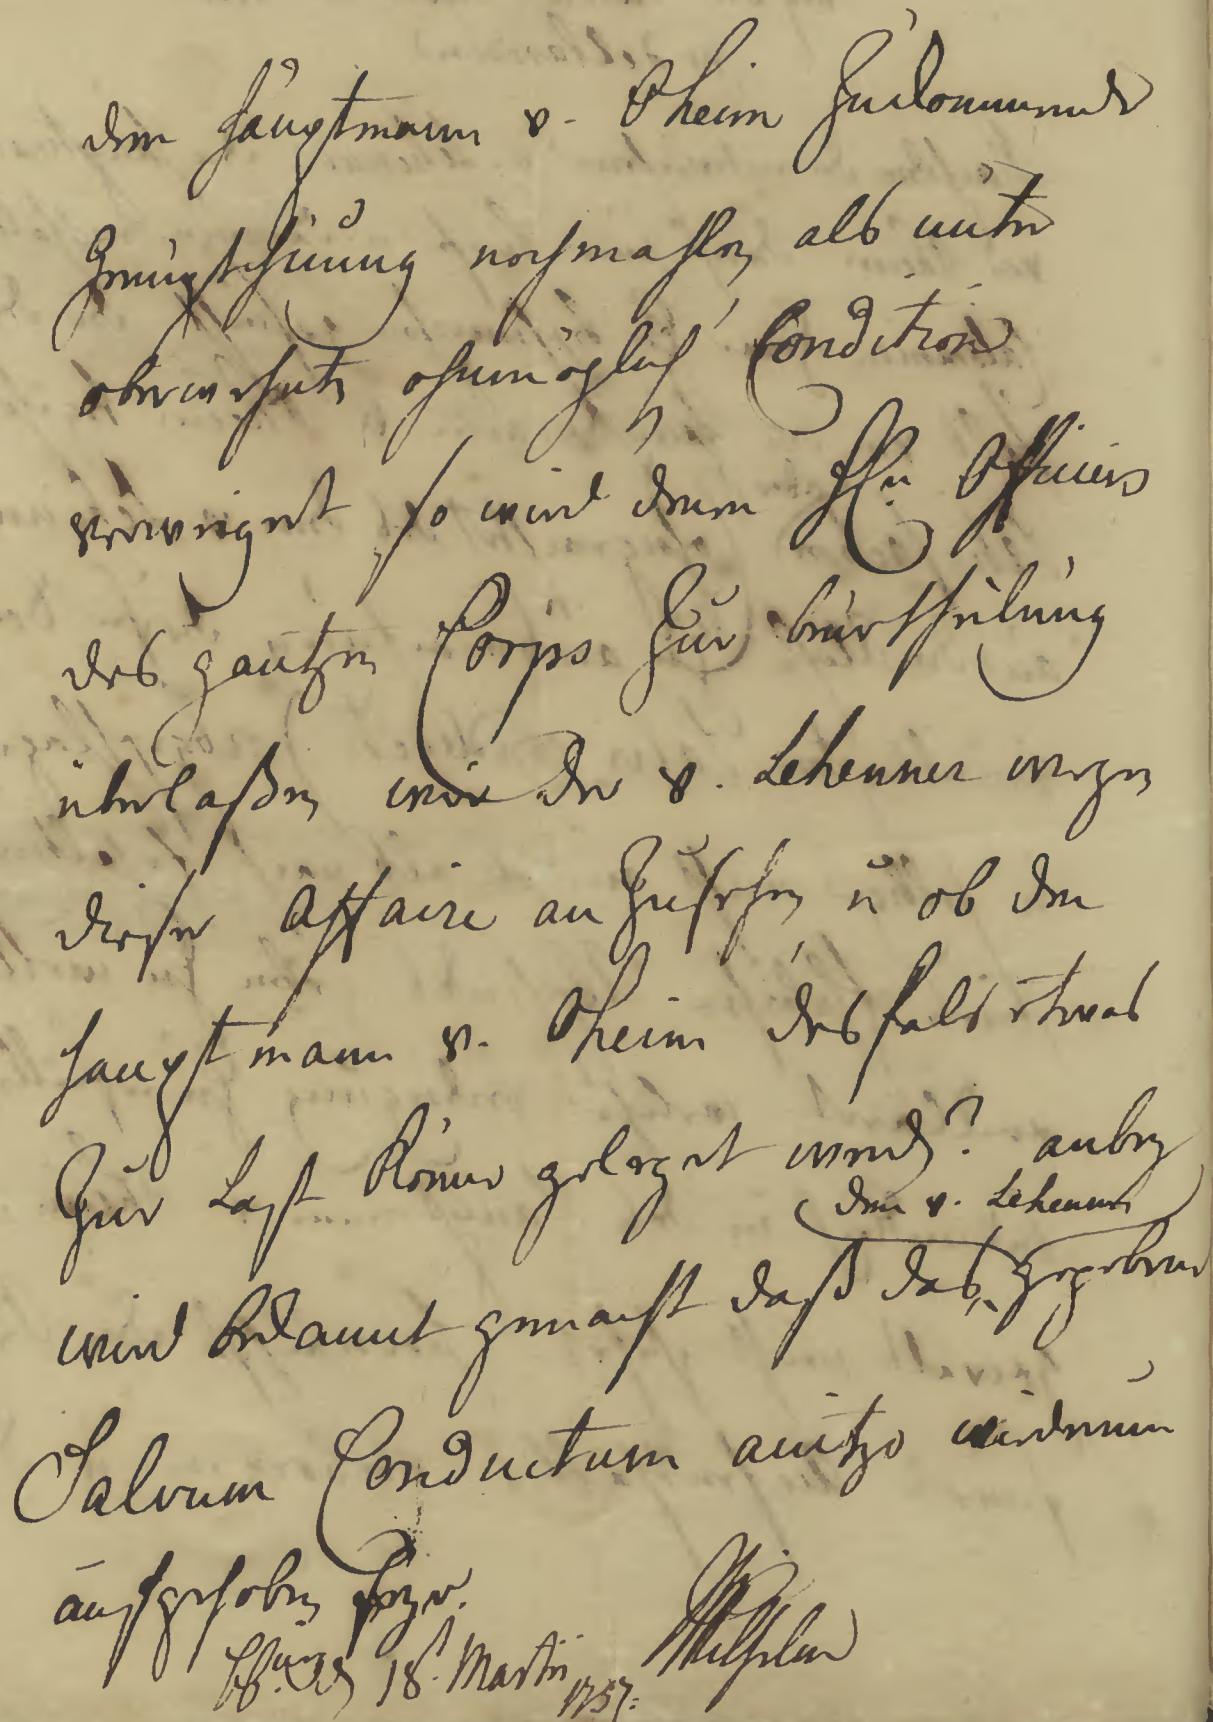 dem Hauptmann v. Oheim Zukommende
Genugthuung nochmahlen als unter
oberwehnte ohnmöglich Condition
verweigert so wird denen Hln Officiers
des gantzen Corps Zur beurtheilung
überlaßen wie der v. Lehenner wegen
dieser Affaire an Zusehen u ob dem
Hauptmann v. Oheim desfals etwas
Zur Last könne geleget werden? anbey
wird bekannt gemacht daß das dem v. Lehenner gegebene
Salvum Conductum anitzo wiederum
aufgehoben seye.
den 18t. Martii 1757. Wilhelm